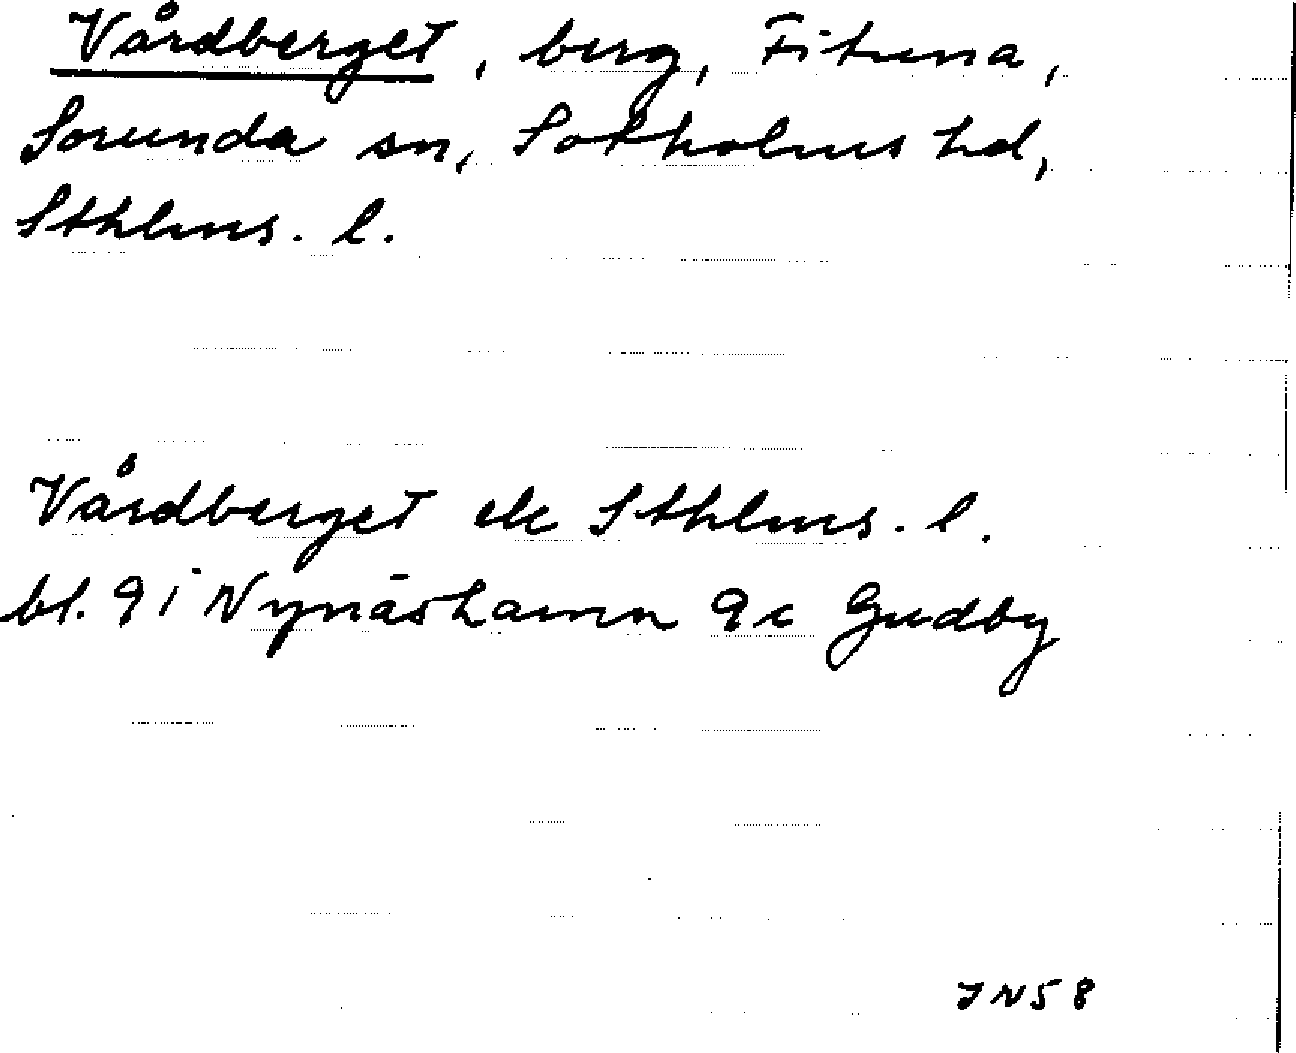 Vårdberget, berg, Fituna,
Sorunda sn, Sotholms hd,
Sthlms. l.
Vårdberget ek Sthlms. l.
bl. 9 i Nynäshamn 9c Gudby
JN58